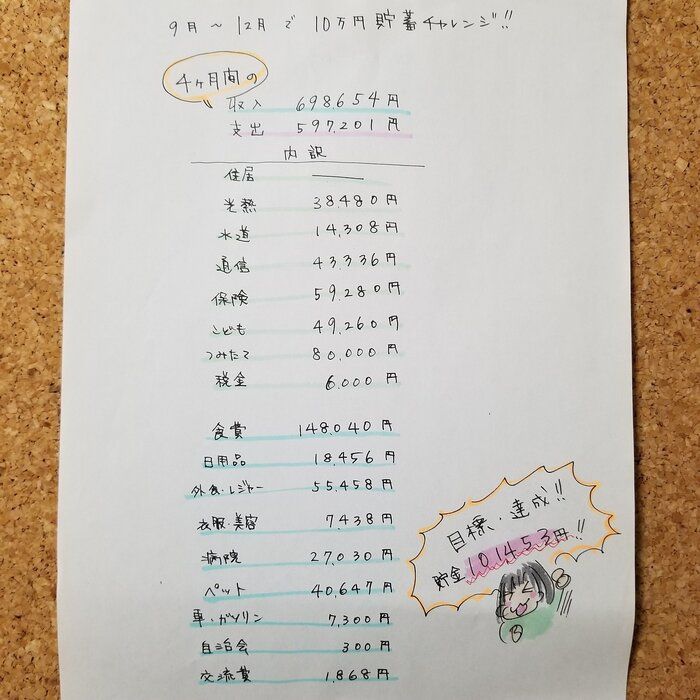 9月～12月で10万円貯蓄チャレンジ!!
4ヶ月間の
収入 698,654円
支出 597,201円
内訳
住居 ―
光熱 38,480円
水道 14,308円
通信 43,336円
保険 59,280円
こども 49,260円
つみたて 80,000円
税金 6,000円
食費 148,040円
日用品 18,456円
外食・レジャー 55,458円
衣服・美容 7,438円
病院 27,030円
ペット 40,647円
車・ガソリン 7,300円
自治会 300円
交流費 1,868円
目標、達成!!
貯金101453円!!